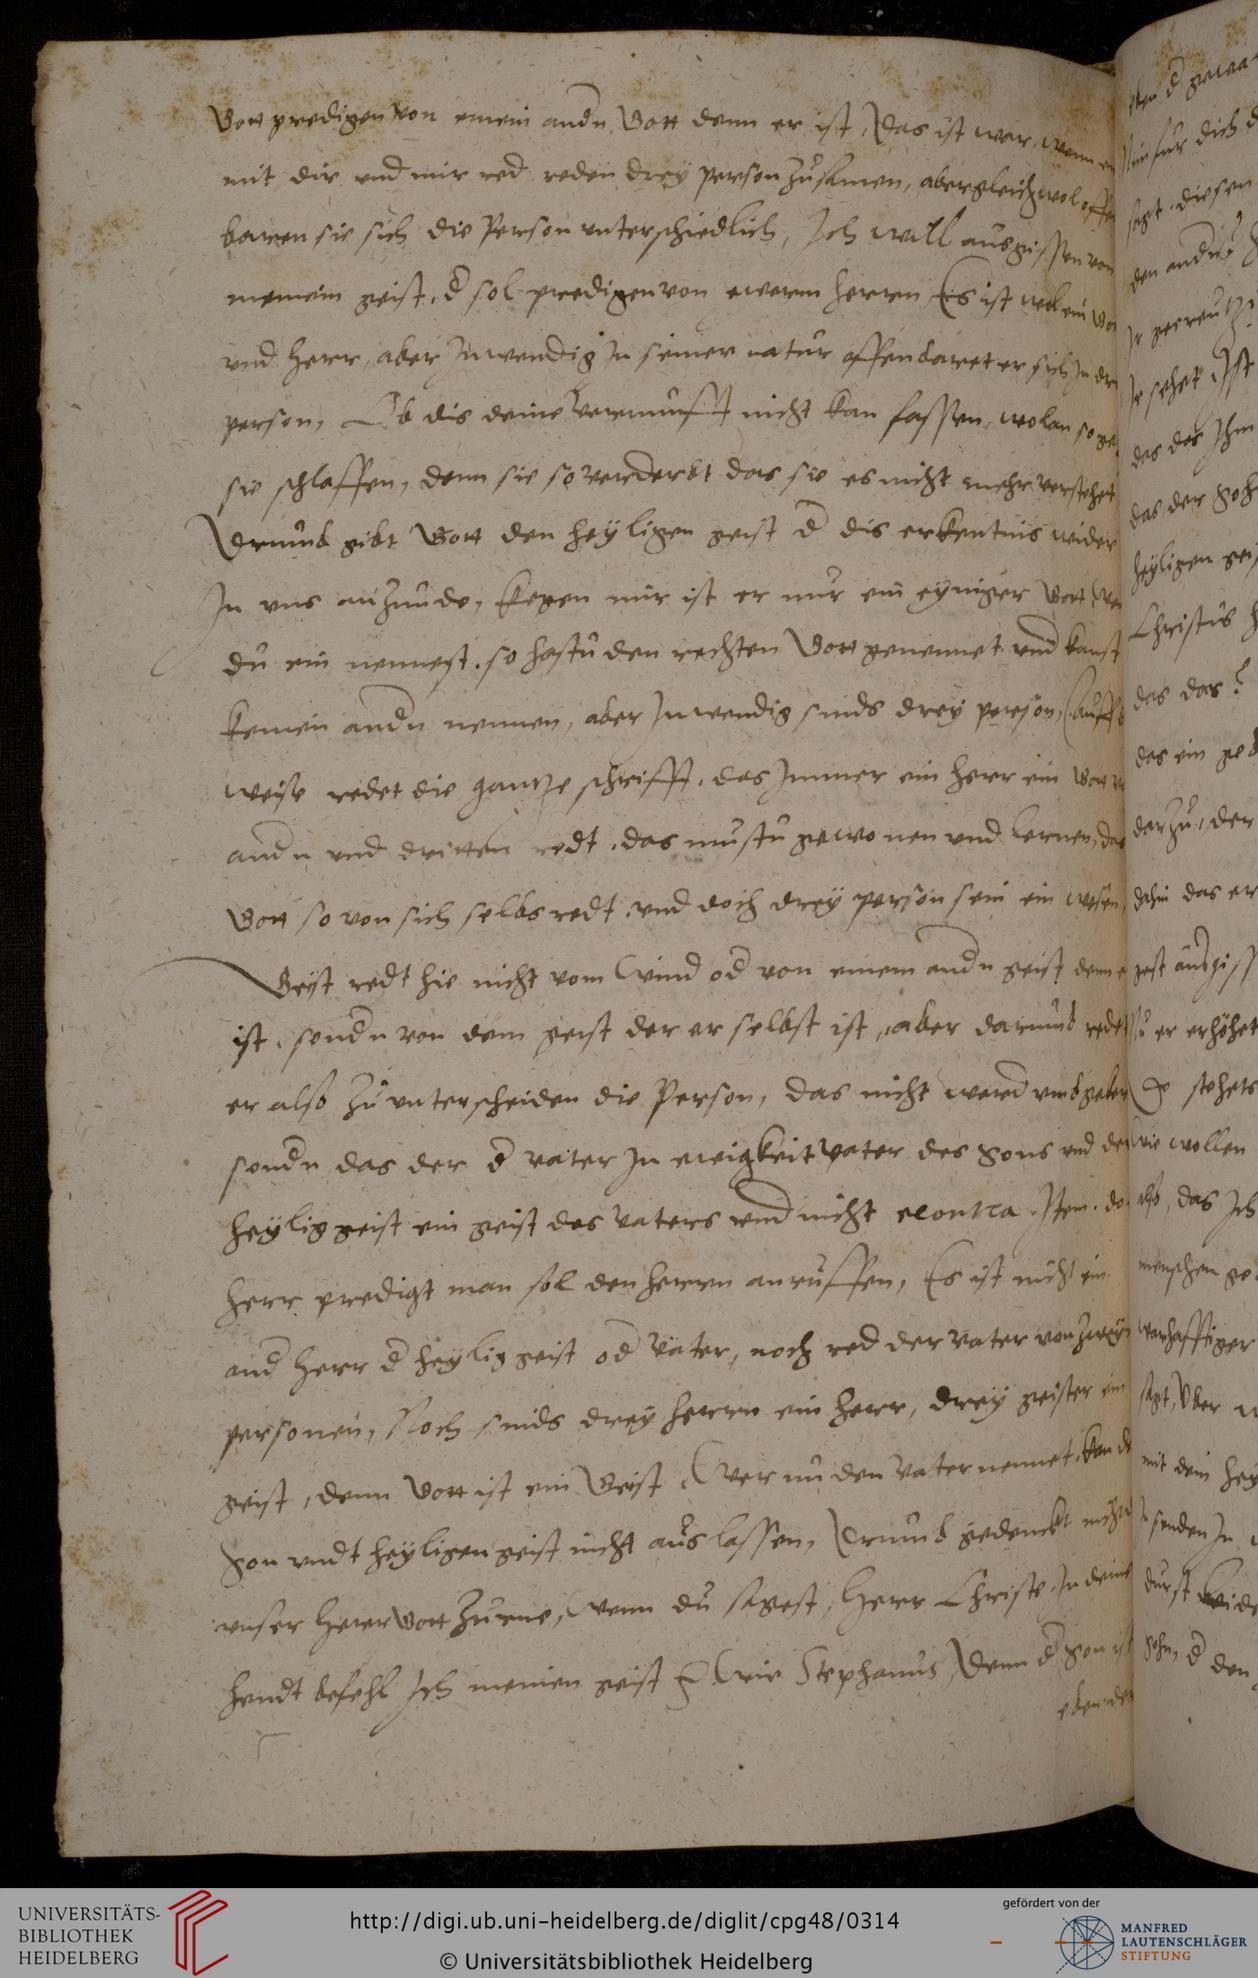 Gott predigen von einem andn Gott denn er ist, Das ist war, wenn er
mit dir und mir red reden drey person zusamen, aber gleichwol offen
baren sie sich die Person unterschiedlich, Ich will ausgissen von
meinem geist, d sol predigen von ewerm herren Es ist wol ein Got
und herr, aber Inwendig In seiner natur offenbaret er sich In drey
person, Ob dis deine vernunfft nicht kan fassen, wolan so
sie schlaffen, denn sie so verderbt das sie es nicht mehr verstehet
Drumb gibt Gott den heyligen geist d dis erkentnis wider
In uns anzunde, kegen mir ist er nur ein eyniger Gott
du ein nennest, so hastu den rechten Gott genennet und kanst
keinen andn nennen, aber Inwendig sinds drey person, auff
weise redet die gantze schrifft, das Immer ein herr ein Gott
andn und dritten redt, das mustu gewonen und lernen, das
Gott so von sich selbs redt, und doch drey person sein ein wesen,
Geist redt hie nicht vom Wind od von einem andn geist denn er
ist, sondn von dem geist der er selbst ist, aber darumb redet
er also zu unterscheiden die Person, das nicht werd umbgeker
sondn das der d vater In ewigkeit vater des Sons und der
heylig geist ein geist des vaters und nicht econtra. Item, do
herr predigt man sol den herrn anruffen, Es ist nicht ein
and herr d heylig geist od vater, noch red der vater von zweyn
personen, Noch sinds drey herrn ein herr, drey geister ein
geist, denn Gott ist ein Geist, Wer nu den Vater nennet, kan de
Son undt heyligen geist nicht aus lassen, Drumb gedenckt nicht
unser herr Gott zurne, Wenn du sagest, Herr Christe In deine
hendt befehl Ich meinen geist Wie Stephanus, Denn d Son ist
eben der
sagt, diesen
des des Ihm
das der Sohn
heyligen geist
Christus
des das?
das ein
darzu, der
dahin das er
geist ausgiss
er erhöhet
stehets
wie wollen
also, das Ich
menschen
warhafftiger
sagt, Uber
mit dem hey
senden In
Sohn, d den
UNIVERSITÄTS-
BIBLIOTHEK
HEIDELBERG
http://digi.ub.uni-heidelberg.de/diglit/cpg48/0314
© Universitätsbibliothek Heidelberg
gefördert von der
MANFRED
LAUTENSCHLÄGER
STIFTUNG